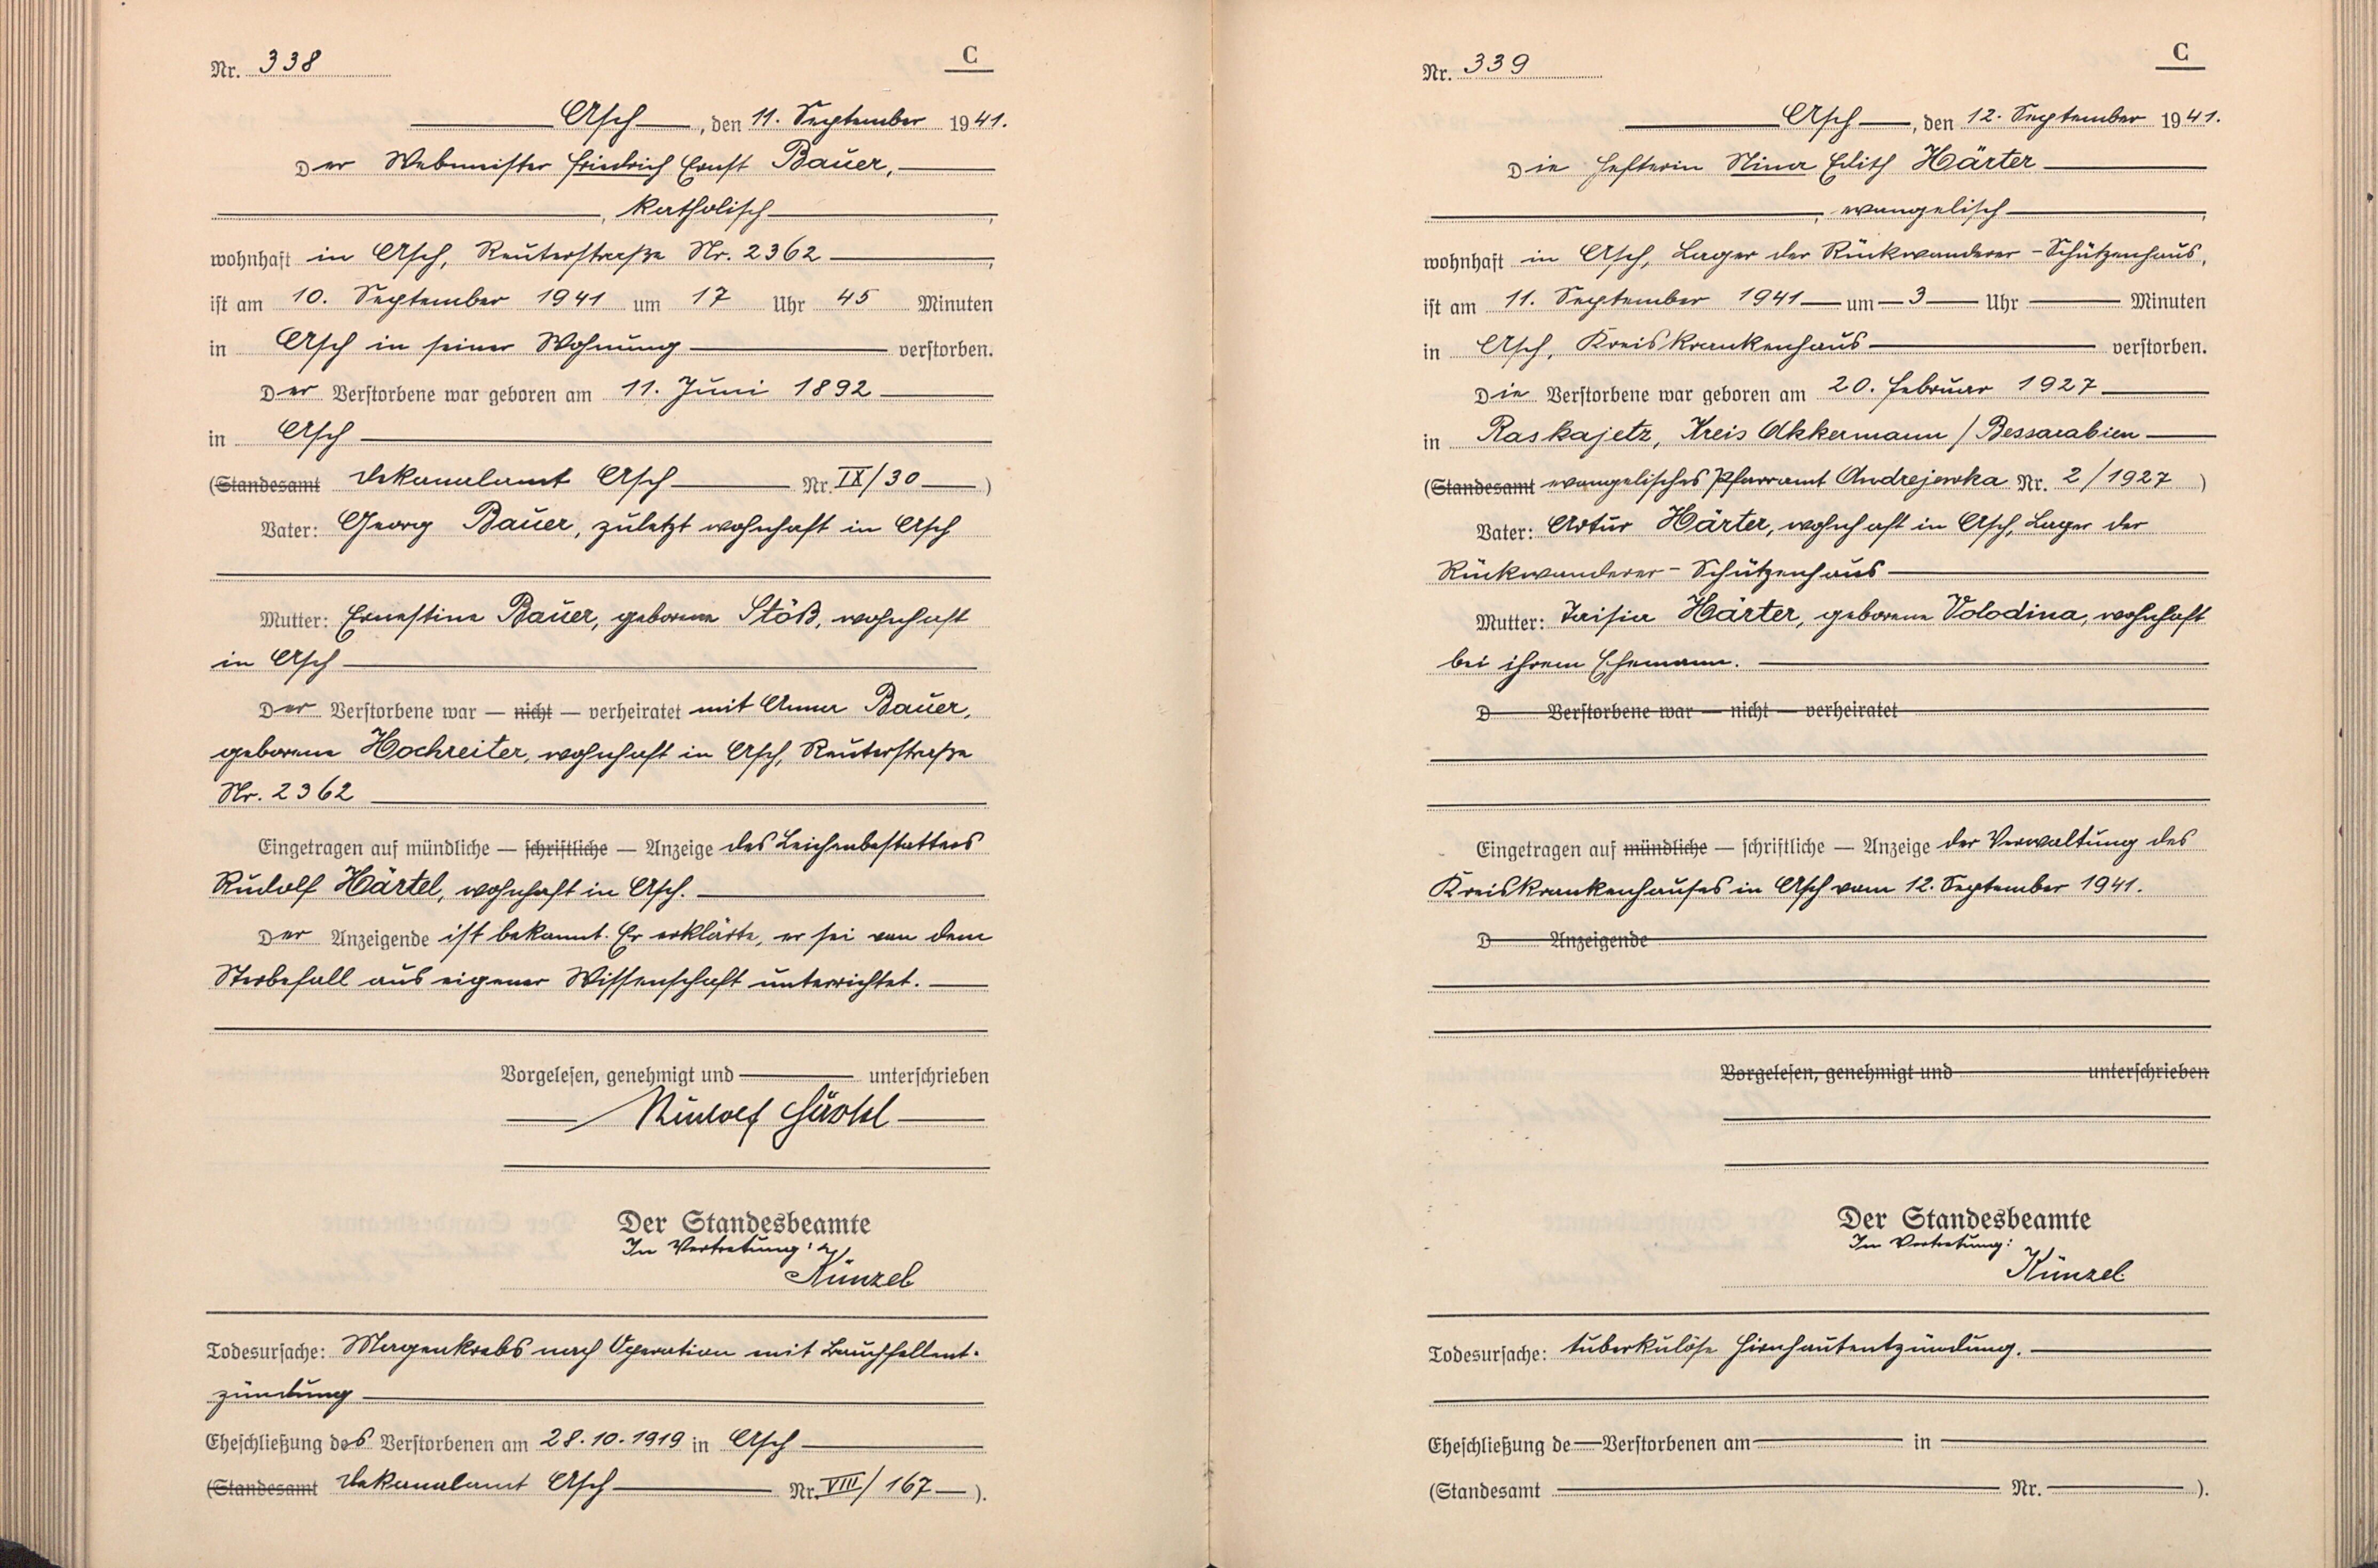 Nr. 338
C
Asch, den 11. September 1941.
Der Webmeister Friedrich Ernst Bauer,
, katholisch,
wohnhaft in Asch, Reuterstraße Nr. 2362,
ist am 10. September 1941 um 17 Uhr 45 Minuten
in Asch in seiner Wohnung verstorben.
Der Verstorbene war geboren am 11. Juni 1892
in Asch
(Standesamt Dekanalamt Asch Nr. IX/30)
Vater: Georg Bauer, zuletzt wohnhaft in Asch
Mutter: Ernestine Bauer, geborene Stöß, wohnhaft
in Asch
Der Verstorbene war — nicht — verheiratet mit Anna Bauer,
geborene Hochreiter, wohnhaft in Asch, Reuterstraße
Nr. 2362
Eingetragen auf mündliche — schriftliche — Anzeige des Leichenbestatters
Rudolf Härtel, wohnhaft in Asch.
Der Anzeigende ist bekannt. Er erklärte, er sei von dem
Sterbefall aus eigener Wissenschaft unterrichtet.
Vorgelesen, genehmigt und unterschrieben
Rudolf Härtel
Der Standesbeamte
In Vertretung:
Künzel
Todesursache: Magenkrebs nach Operation mit Bauchfellent-
zündung
Eheschließung des Verstorbenen am 28.10.1919 in Asch
(Standesamt Dekanalamt Asch Nr. VIII/167).
Nr. 339
C
Asch, den 12. September 1941.
Die Hefterin Nina Edith Härter
, evangelisch,
wohnhaft in Asch, Lager der Rückwanderer-Schützenhaus,
ist am 11. September 1941 um 3 Uhr Minuten
in Asch, Kreiskrankenhaus verstorben.
Die Verstorbene war geboren am 20. Februar 1927
in Raskajetz, Kreis Akkermann / Bessarabien
(Standesamt evangelisches Pfarramt Andrejewka Nr. 2/1927)
Vater: Artur Härter, wohnhaft in Asch, Lager der
Rückwanderer-Schützenhaus
Mutter: Taisia Härter, geborene Volodina, wohnhaft
bei ihrem Ehemann.
D Verstorbene war — nicht — verheiratet
Eingetragen auf mündliche — schriftliche — Anzeige der Verwaltung des
Kreiskrankenhauses in Asch vom 12. September 1941.
D Anzeigende
Vorgelesen, genehmigt und unterschrieben
Der Standesbeamte
In Vertretung:
Künzel
Todesursache: tuberkulöse Hirnhautentzündung.
Eheschließung de Verstorbenen am in
(Standesamt Nr. ).